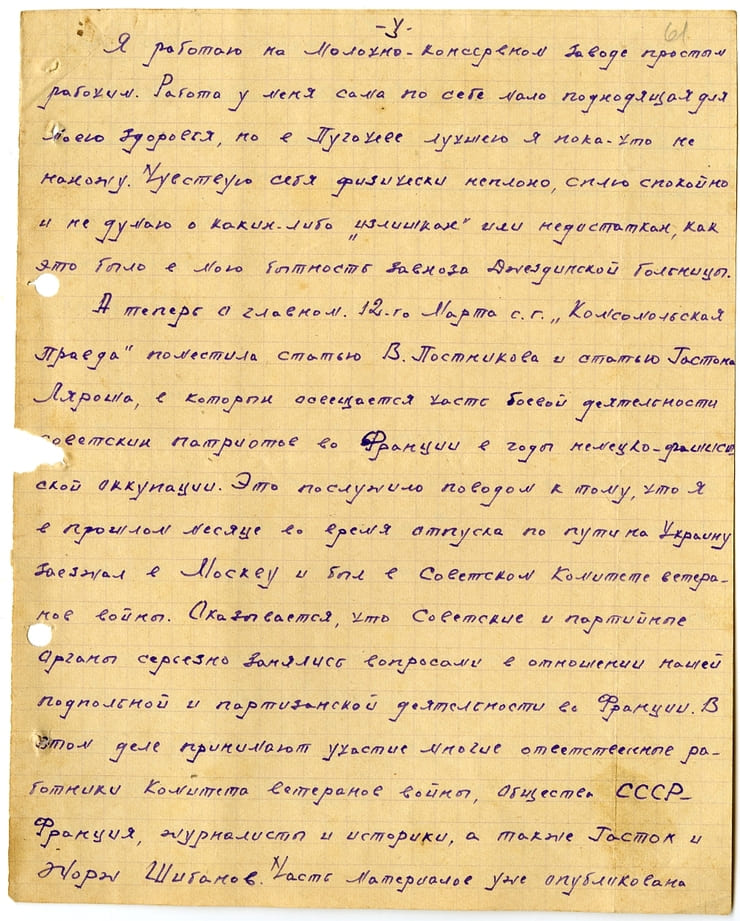 -V-
61.
Я работаю на Молочно-консервном заводе простым
рабочим. Работа у меня сама по себе мало подходящая для
моего здоровья, но в Пугачеве лучшего я пока-что не
нахожу. Чувствую себя физически неплохо, сплю спокойно
и не думаю о каких-либо „излишках" или недостатках, как
это было в мою бытность завхоза Джездинской больницы.
А теперь о главном. 12-го Марта с.г. „Комсомольская
Правда" поместила статью В. Постникова и статью Гастона
Ляроша, в которых освещается часть боевой деятельности
советских патриотов во Франции в годы немецко-фашист
ской оккупации. Это послужило поводом к тому, что я
в прошлом месяце во время отпуска по пути на Украину
заезжал в Москву и был в Советском Комитете ветера-
нов войны. Оказывается, что Советские и партийные
органы серьезно занялись вопросами в отношении нашей
подпольной и партизанской деятельности во Франции. В
этом деле принимают участие многие ответственные ра-
ботники Комитета ветеранов войны, Общества СССР-
Франция, журналисты и историки, а также Гастон и
Жорж Шибанов. Часть материалов уже опубликована